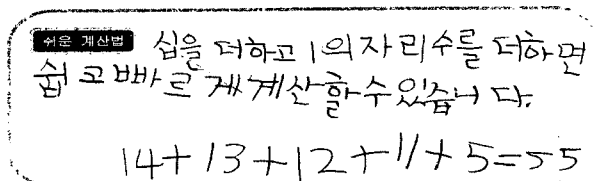 쉬운 계산법 십을 더하고 1의자리수를 더하면
쉽고빠르게계산할수있습니다.
14+13+12+11+5=55